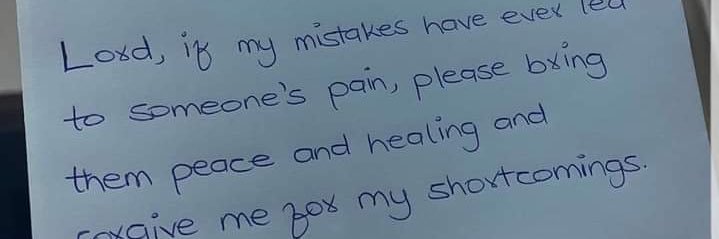 Lord, if my mistakes have ever led
to someone's pain, please bring
them peace and healing and
forgive me for my shortcomings.